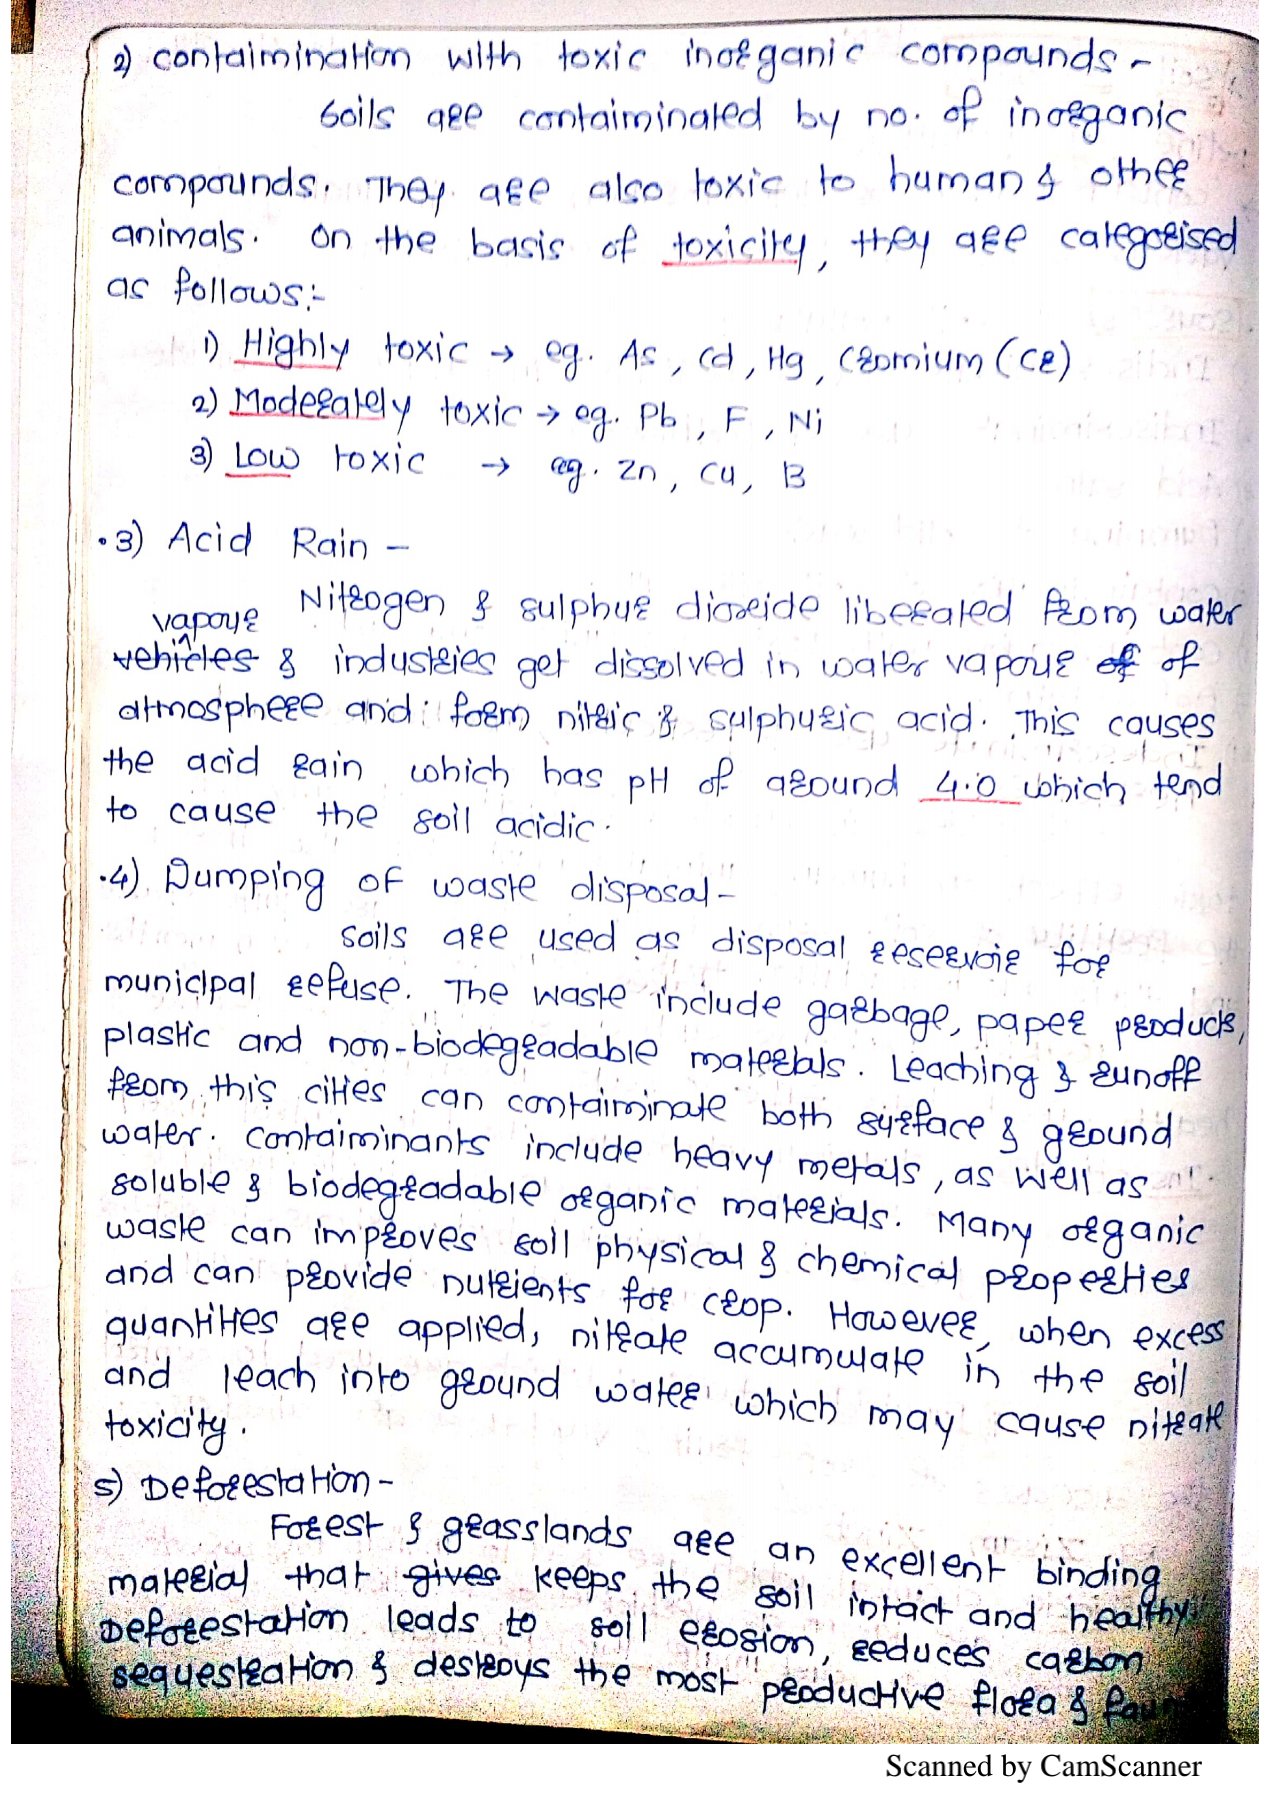 2) contaimination with toxic inorganic compounds -
Soils are contaiminated by no. of inorganic
compounds. They are also toxic to human & other
animals. On the basis of toxicity, they are categorised
as follows:-
1) Highly toxic → eg. As, Cd, Hg, Cromium (Cr)
2) Moderately toxic → eg. Pb, F, Ni
3) Low toxic → eg. Zn, Cu, B
.3) Acid Rain -
Nitrogen & sulphur dioxide liberated from water
vapour
vehicles & industries get dissolved in water vapour of of
atmosphere and form nitric & sulphuric acid. This causes
the acid rain which has pH of around 4.0 which tend
to cause the soil acidic.
.4) Dumping of waste disposal -
Soils are used as disposal reservoir for
municipal refuse. The waste include garbage, paper products,
plastic and non-biodegradable materials. Leaching & runoff
from this cities can contaiminate both surface & ground
water. Contaiminants include heavy metals, as well as
soluble & biodegradable organic materials. Many organic
waste can improves soil physical & chemical properties
and can provide nutrients for crop. However, when excess
quantities are applied, nitrate accumulate in the soil
and leach into ground water which may cause nitrate
toxicity.
5) Deforestation -
Forest & grasslands are an excellent binding
material that gives keeps the soil intact and healthy.
Deforestation leads to soil erosion, reduces carbon
sequestration & destroys the most productive flora &
Scanned by CamScanner